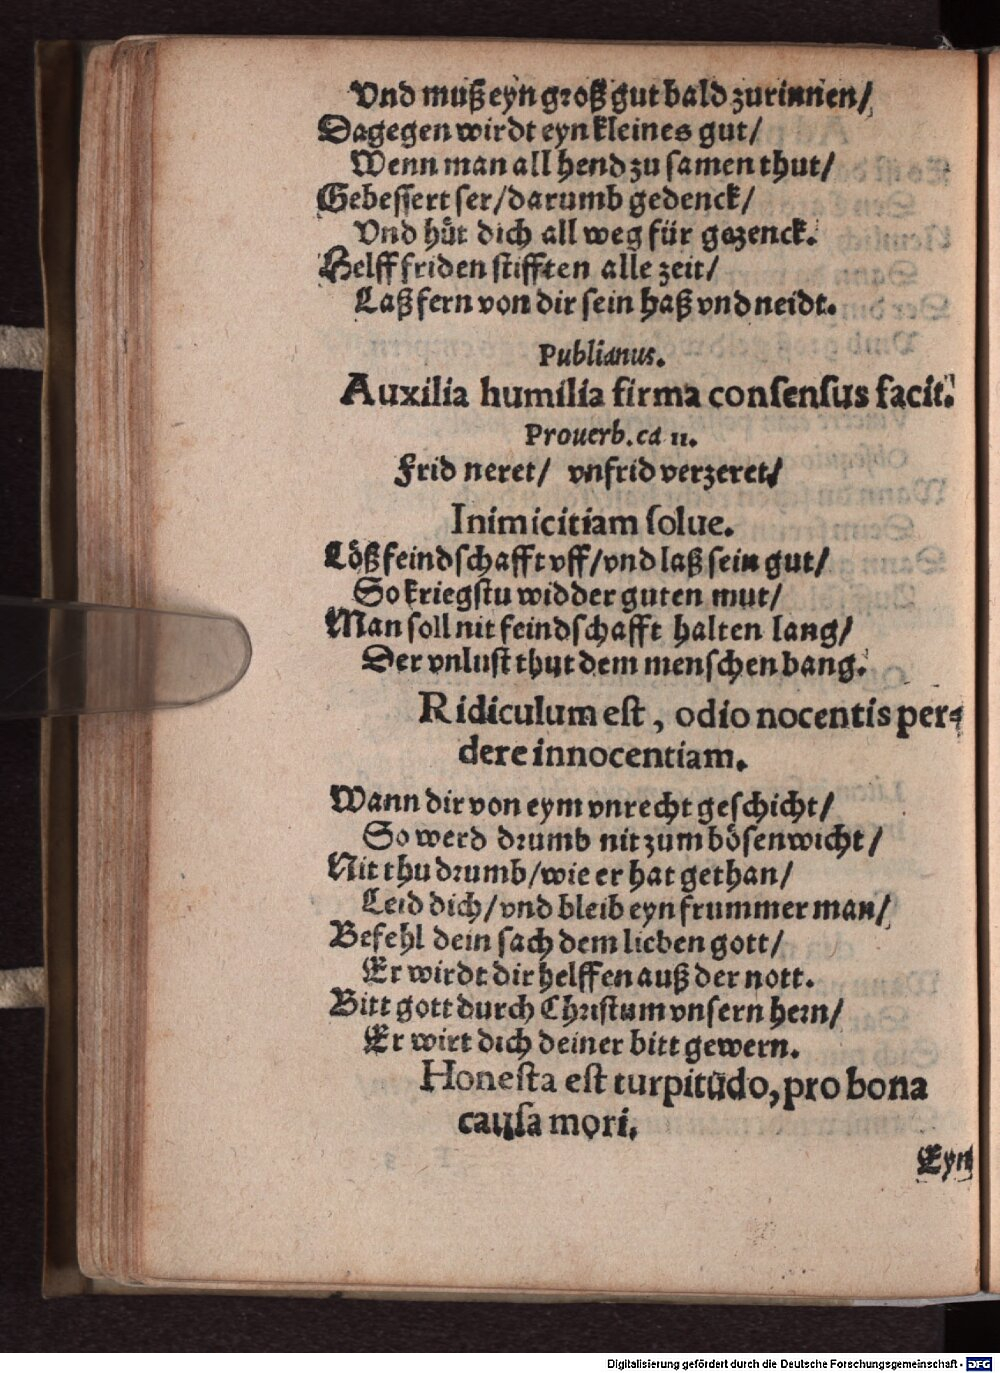 Vnd muß eyn groß gut bald zurinnen/
Dagegen wirdt eyn kleines gut/
Wenn man all hend zu samen thut/
Gebessert ser/darumb gedenck/
Vnd hüt dich all weg für gezenck.
Helff friden stifften alle zeit/
Laß fern von dir sein haß vnd neidt.
Publianus.
Auxilia humilia firma conſenſus facit.
Prouerb. ca 11.
Frid neret/ vnfrid verzeret/
Inimicitiam ſolue.
Löß feindschafft vff/vnd laß sein gut/
So kriegstu widder guten mut/
Man soll nit feindschafft halten lang/
Der vnlust thut dem menschen bang.
Ridiculum eſt, odio nocentis per-
dere innocentiam.
Wann dir von eym vnrecht geschicht/
So werd drumb nit zum bösenwicht/
Nit thu drumb/wie er hat gethan/
Leid dich/vnd bleib eyn frummer man/
Befehl dein sach dem lieben gott/
Er wirdt dir helffen auß der nott.
Bitt gott durch Christum vnsern hern/
Er wirt dich deiner bitt gewern.
Honeſta eſt turpitudo, pro bona
cauſa mori.
Eyn
Digitalisierung gefördert durch die Deutsche Forschungsgemeinschaft - DFG